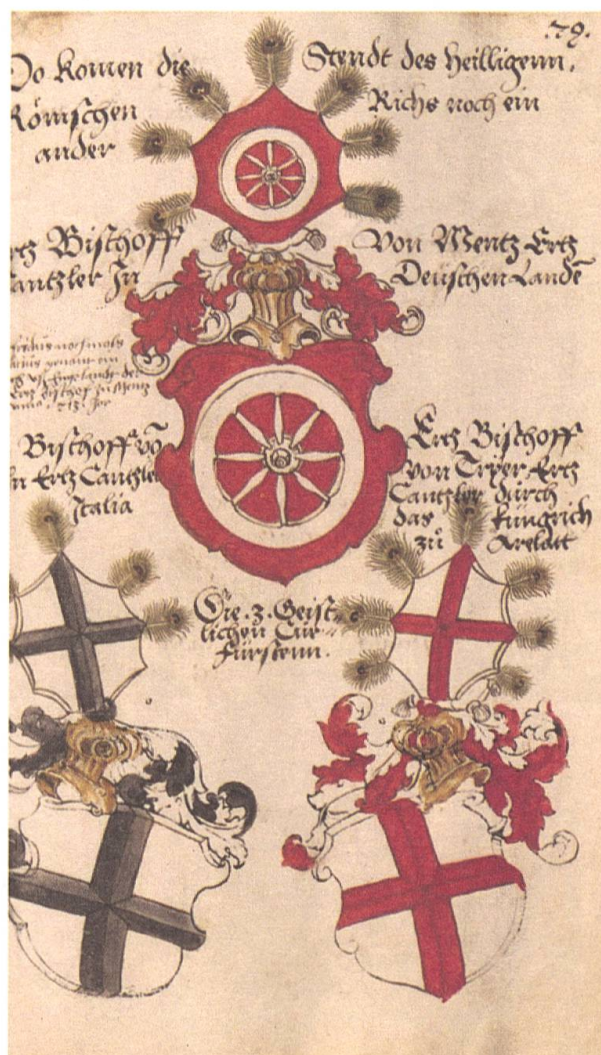 79.
Do komen die Stendt des Heilligenn,
Römischen Richs noch ein
ander
Bischoff Von Mentz Ertz
Cantzler In Deutschen Lande
Bischoff vō
Ertz Cantzler
Italia
Ertz Bischoff
von Tryer Ertz
Cantzler durch
das Küngrich
zů Arelatt
Die .3. Geist-
lichen Cur-
fürstenn.